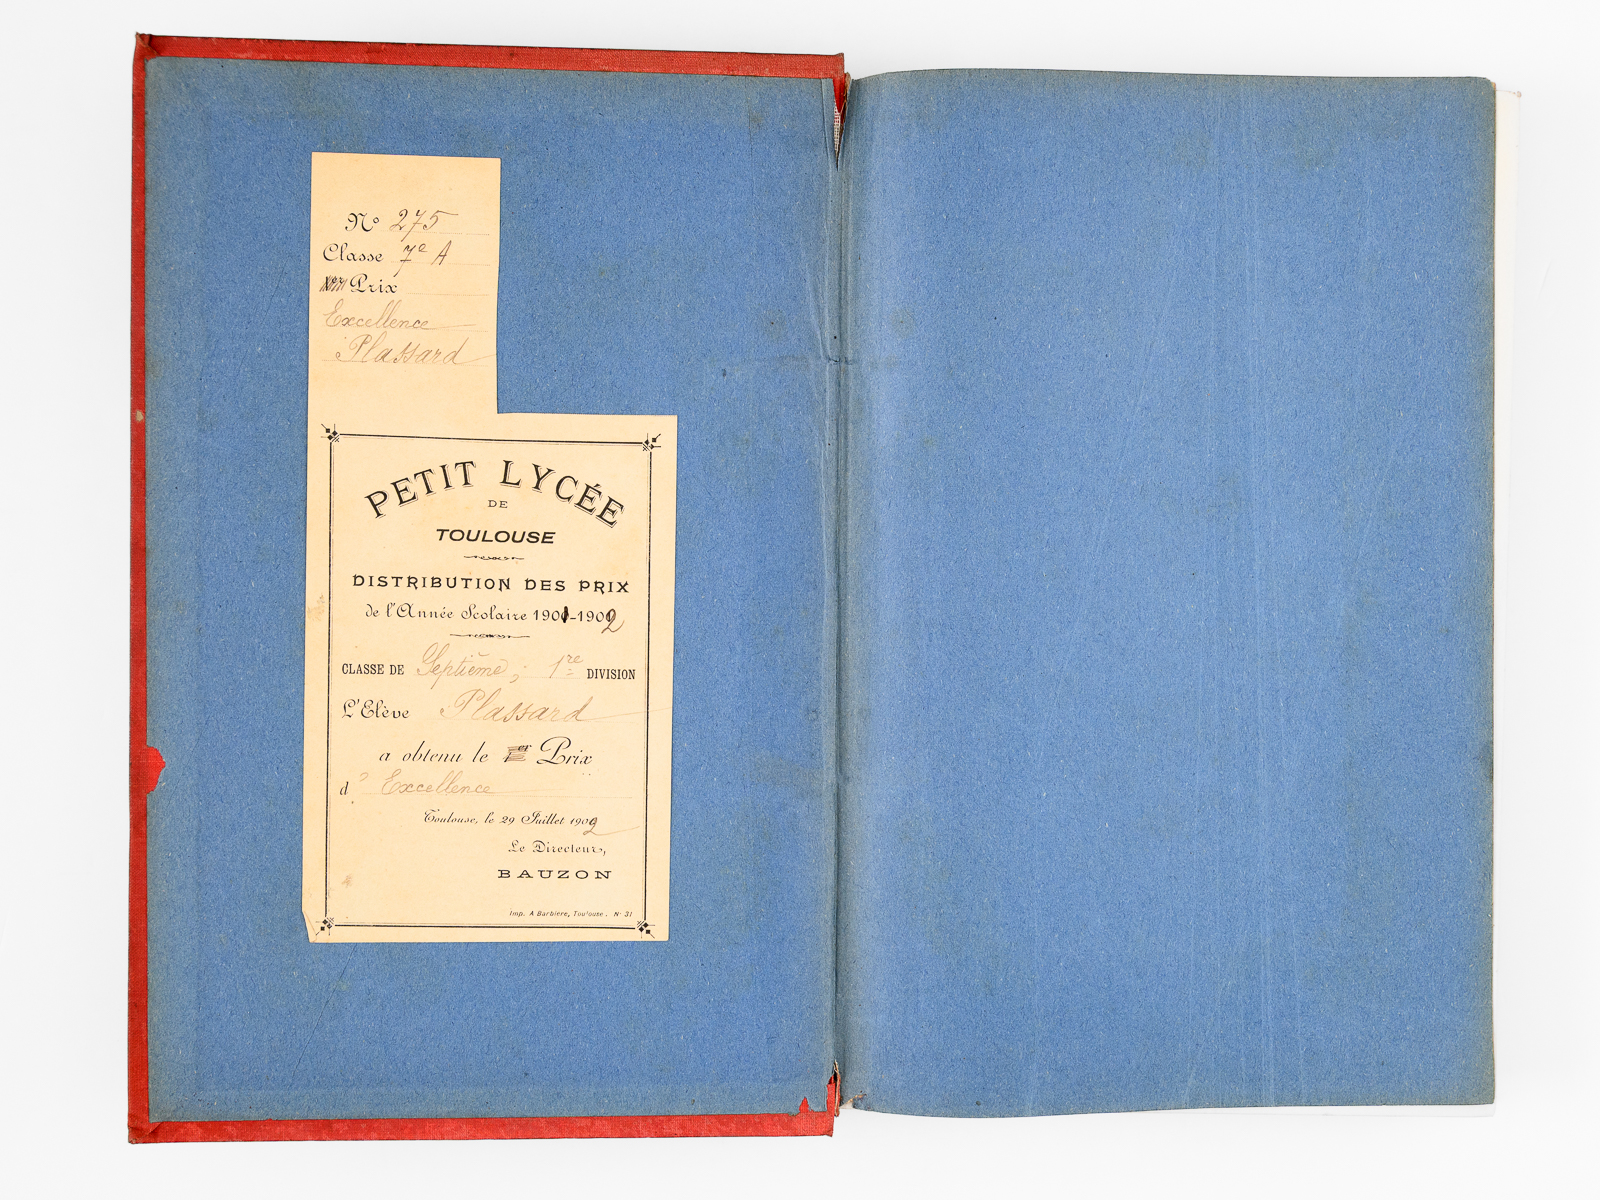 No 275
Classe 7e A
Prix
Excellence
Plassard
PETIT LYCÉE
DE
TOULOUSE
DISTRIBUTION DES PRIX
de l'Année Scolaire 1901-1902
CLASSE DE Septième, 1re DIVISION
L'Elève Plassard
a obtenu le 1er Prix
d' Excellence
Toulouse, le 29 Juillet 1902
Le Directeur,
BAUZON
Imp. A Barbiere, Toulouse. No 31